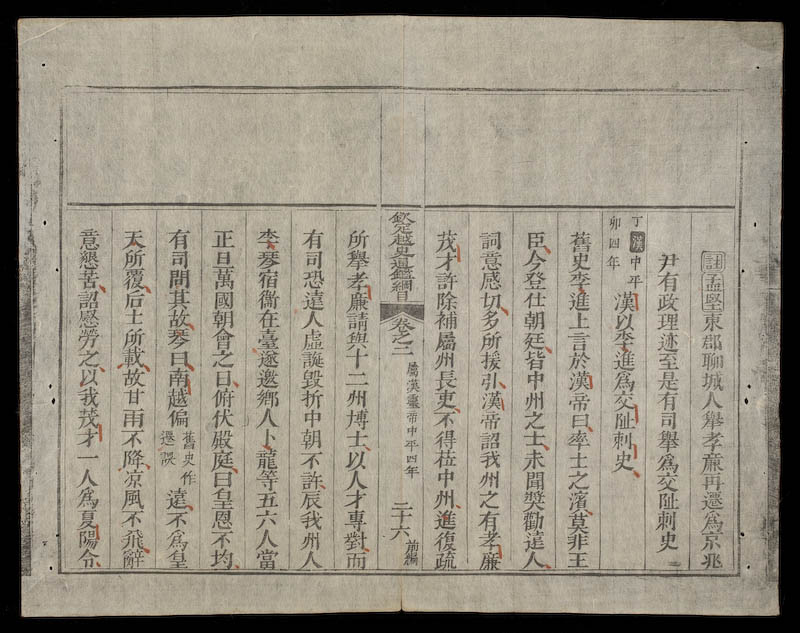 註孟堅東郡聊城人舉孝廉再遷爲京兆
尹有政理迹至是有司舉爲交趾刺史
丁卯漢中平四年漢以李進爲交趾刺史
舊史李進上言於漢帝曰率士之濱莫非王
臣今登仕朝廷皆中州之士未聞奬勸遠人
詞意感切多所援引漢帝詔我州之有孝廉
茂才許除補屬州長吏不得莅中州進復疏
欽定越史通鑑綱目 卷之二 屬漢靈帝中平四年 二十六 前編
所舉孝廉請與十二州博士以人才專對而
有司恐遠人虛誕毀折中朝不許辰我州人
李琴宿衛在臺遂邀鄉人卜龍等五六人當
正旦萬國朝會之日俯伏殿庭曰皇恩不均
有司問其故琴曰南越偏舊史作遐誤遠不爲皇
天所覆后土所載故甘雨不降凉風不飛辭
意懇苦詔慰勞之以我茂才一人爲夏陽令